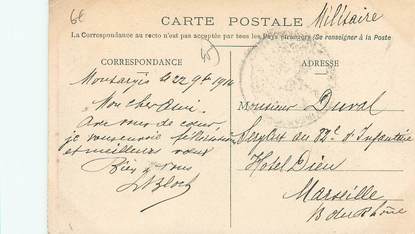 66
CARTE POSTALE Militaire
La Correspondance au recto n'est pas acceptée par tous les Pays étrangers (Se renseigner à la Poste
CORRESPONDANCE
Montargis le 22 9bre 1914
Mon cher Ami.
Avec mes de cœur
je vous envoie félicitations
et meilleurs vœux
Bien à vous
Bloch
ADRESSE
Monsieur Duval
Sergent au d'Infanterie
Hotel Dieu
Marseille
B du Rhône